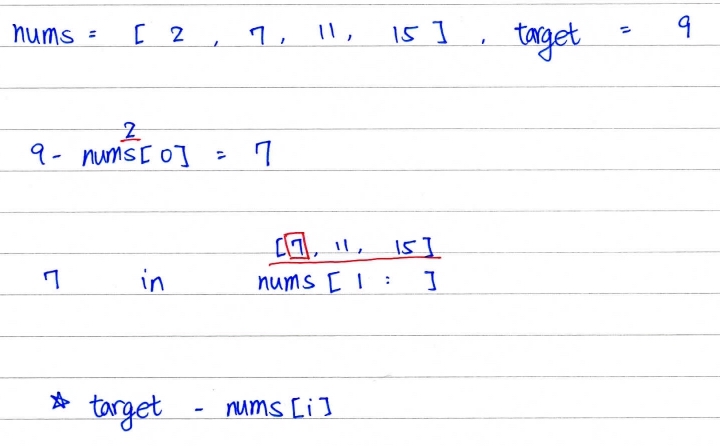 nums = [ 2 , 7, 11, 15 ] , target = 9
2
9 - nums[0] = 7
[7, 11, 15]
7 in nums [ 1 : ]
☆ target - nums[i]